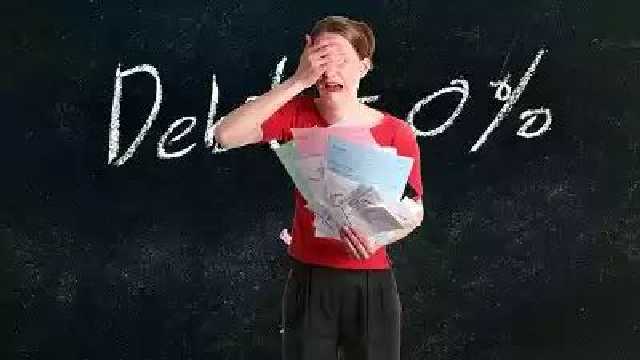 Debt - 0%